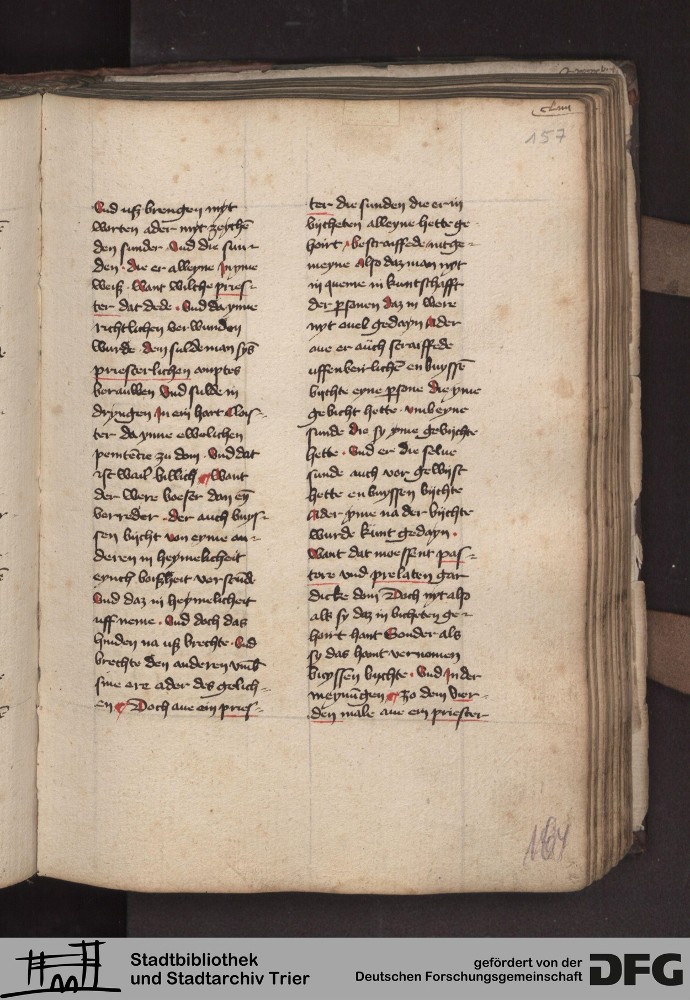 clvii
157
Vnd usz brengen myt
worten ader myt zeychē
den sunder · Vnd die sun-
den · die er alleyne In yme
weisz · Want wilche pries-
ter dat dede · Vnd da ynne
richtlichen verwunden
wurde · dem sulde man syns
priesterlichen amptes
berauben Vnd sulde in
dryngen In ein hart Clois-
ter da ynne ewelichen
penitēcie zu doin · Vnd dat
ist wail billich Want
der were boeser dan eyn
verreder · der auch buys-
sen bijcht von eyme an-
deren in heymelicheit
eynch boiszheit verstūde
Vnd daz in heymelicheit
uff neme · Vnd doch das
hinden na usz brechte · Vnd
brechte den anderen vmb
sine ere ader des gelich-
en Doch aue ein pries-
ter die sunden die er in
bijcheten alleyne hette ge-
hoirt · bestraiffede in tge-
meyne Also daz man nyt
in queme in kuntschafft
der personen daz in were
nyt ouel gedayn Ader
aue er auch straiffede
uffenberlichen en buyssen
bijchte eyne persone die yme
gebicht hette · vmb eyne
sunde die sy yme gebijchte
hette · Vnd er die selue
sunde auch vor gewijst
hette en buyssen bijchte
Ader yme na der bijchte
wurde kunt gedayn ·
Want dat moessent pas-
tore vnd prelaten gar
dicke doin Doch nyt also
als sy daz in bicheten ge-
hoirt hant Sonder als
sy das haint vernomen
buyssen bijchte · Vnd In der
meynūgen Zo dem vier-
den male aue ein priester
164
Stadtbibliothek
und Stadtarchiv Trier
gefördert von der
Deutschen Forschungsgemeinschaft
DFG